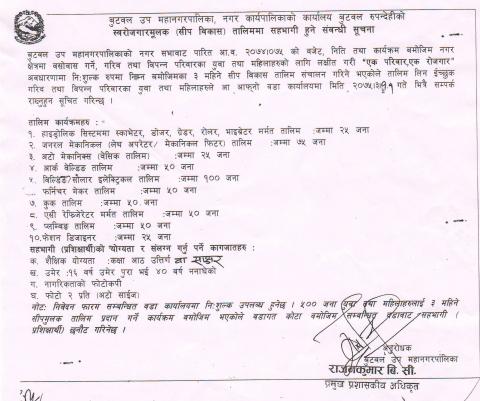 बुटवल उप महानगरपालिका, नगर कार्यपालिकाको कार्यालय बुटवल रुपन्देहीको
स्वरोजगारमुलक (सीप विकास) तालिममा सहभागी हुने संबन्धी सूचना
बुटवल उप महानगरपालिकाको नगर सभावाट पारित आ.व. २०७४।०७५ को बजेट, निति तथा कार्यक्रम बमोजिम नगर
क्षेत्रमा वसोवास गर्ने, गरिव तथा विपन्न परिवारका युवा तथा महिलाहरुको लागि लक्षीत गरी "एक परिवार,एक रोजगार"
अवधारणामा नि:शुल्क रुपमा निम्न बमोजिमका ३ महिने सीप विकास तालिम संचालन गरिने भएकोले तालिम लिन ईच्छुक
गरिव तथा विपन्न परिवारका युवा तथा महिलाहरुले आ आफ्नो वडा कार्यालयमा मिति २०७५।३। गते भित्रै सम्पर्क
राख्नुहुन सूचित गरिन्छ ।
तालिम कार्यक्रमहरु :
१. हाइड्रोलिक सिस्टममा स्काभेटर, डोजर, ग्रेडर, रोलर, भाइब्रेटर मर्मत तालिम :जम्मा २५ जना
२. जनरल मेकानिकल (लेथ अपरेटर/ मेकानिकल फिटर) तालिम :जम्मा ७५ जना
३. अटो मेकानिक्स (वेसिक तालिम) :जम्मा २५ जना
४. आर्क वेल्डिङ तालिम :जम्मा ५० जना
५. बिल्डिङ/सौलार इलेक्ट्रिकल तालिम :जम्मा १०० जना
फर्निचर मेकर तालिम :जम्मा ५० जना
७. कुक तालिम :जम्मा ५० जना
८. एसी रेफ्रिजेरेटर मर्मत तालिम :जम्मा ५० जना
९. प्लम्बिङ तालिम :जम्मा ५० जना
१०.फेशन डिजाइनर :जम्मा २५ जना
सहभागी (प्रशिक्षार्थी)को योग्यता र संलग्न गर्नु पर्ने कागजातहरु :
क. शैक्षिक योग्यता :कक्षा आठ उत्तिर्ण वा साक्षर
ख. उमेर :१६ वर्ष उमेर पुरा भई ४० वर्ष ननाघेको
ग. नागरिकताको फोटोकपी
घ. फोटो २ प्रति (अटो साईज)
नोट: निवेदन फारम सम्बन्धित वडा कार्यालयमा नि:शुल्क उपलव्ध हुनेछ । ५०० जना युवा तथा महिलाहरुलाई ३ महिने
सीपमुलक तालिम प्रदान गर्ने कार्यक्रम बमोजिम भएकोले वडागत कोटा बमोजिम सम्बन्धित वडावाट सहभागी (
प्रशिक्षार्थी) छनौट गरिनेछ ।
अनुरोधक
बुटवल उप महानगरपालिका
राजनकुमार बि. सी.
प्रमुख प्रशासकीय अधिकृत